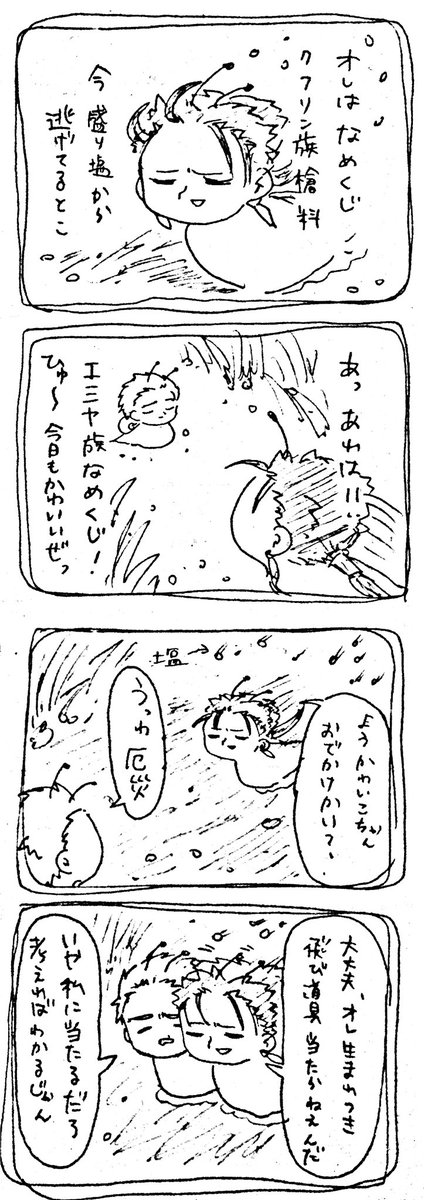 オレはなめくじ
クフリン族槍科
今盛り塩から
逃げてるとこ
あっ あれは!!
エミヤ族なめくじ!
ひゅ〜 今日もかわいいぜっ
ようかわいこちゃん
おでかけかい?
塩→
うっわ
厄災
大丈夫、オレ生まれつき
飛び道具当たらねえんだ
いや私に当たるだろ
考えればわかるじゃん